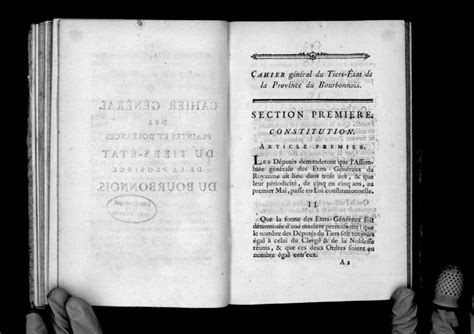 CAHIER GÉNÉRAL
DES
PLAINTES ET DOLÉANCES
DU TIERS-ÉTAT
DE LA PROVINCE
DU BOURBONNOIS
CAHIER général du Tiers-Etat de
la Province du Bourbonnois.
SECTION PREMIERE.
CONSTITUTION.
ARTICLE PREMIER.
LES Députés demanderont que l'Assem-
blée générale des Etats-Généraux du
Royaume ait lieu dans trois ans, & que
leur périodicité, de cinq en cinq ans, au
premier Mai, passe en Loi constitutionnelle.
II.
Que la forme des Etats-Généraux soit
déterminée d'une maniere permanente: que
le nombre des Députés du Tiers soit toujours
égal à celui du Clergé & de la Noblesse
réunis, & que ces deux Ordres soient en
nombre égal entr'eux.
A 2